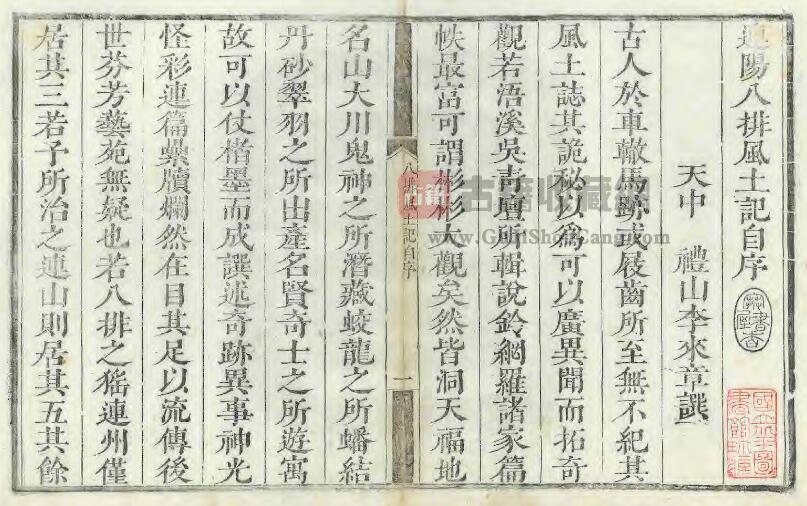 連陽八排風土記自序
天中 禮山李來章譔
古人於車轍馬跡或屐齒所至無不紀其
風土誌其詭秘以爲可以廣異聞而拓奇
觀若浯溪吳青壇所輯說鈴網羅諸家篇
帙最富可謂彬彬大觀矣然皆洞天福地
八排風土記自序
一
名山大川鬼神之所潛藏蛟龍之所蟠結
丹砂翠羽之所出產名賢奇士之所遊寓
故可以仗楮墨而成譔述奇跡異事神光
怪彩連篇纍牘爛然在目其足以流傳後
世芬芳藝苑無疑也若八排之猺連州僅
居其三若予所治之連山則居其五其餘
古籍
古籍收藏網
www.GujiShouCang.com